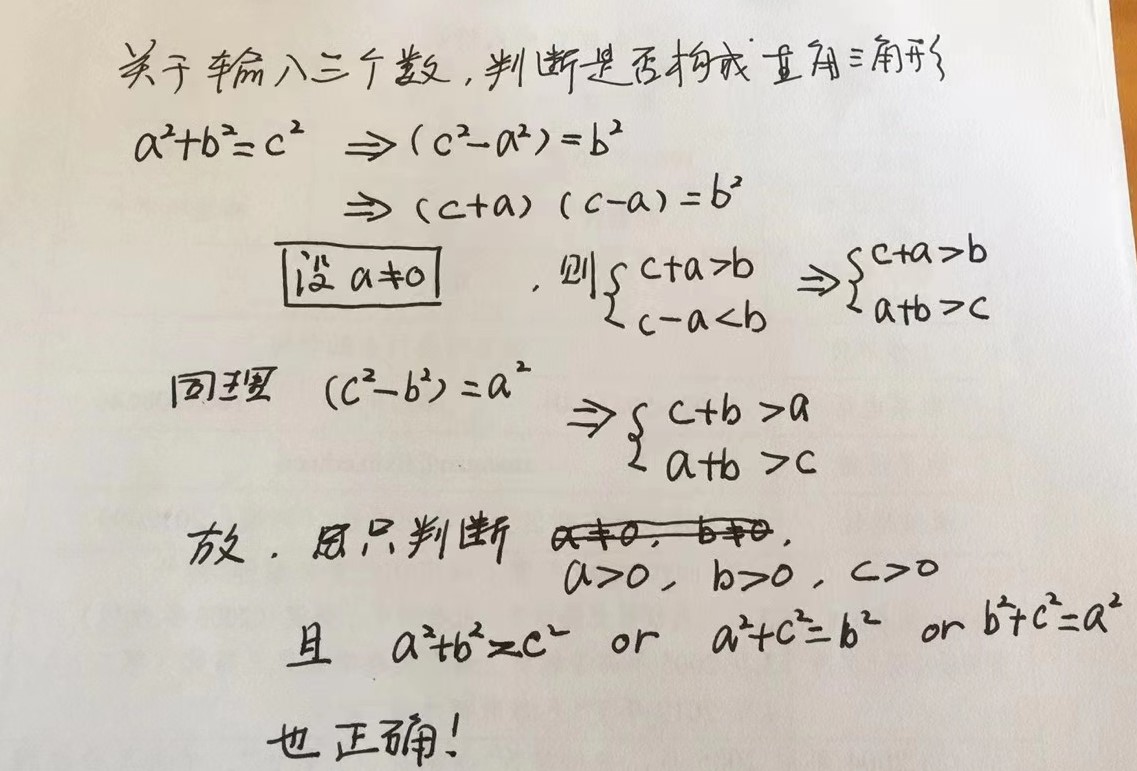 关于输入三个数,判断是否构成直角三角形
a²+b²=c² ⇒(c²-a²)=b²
⇒ (c+a) (c-a)=b²
设 a≠0 , 则{ c+a>b ⇒{ c+a>b
c-a<b a+b>c
同理 (c²-b²)=a²
⇒{ c+b>a
a+b>c
故, 只判断 a≠0, b≠0,
a>0, b>0, c>0
且 a²+b²=c² or a²+c²=b² or b²+c²=a²
也正确!